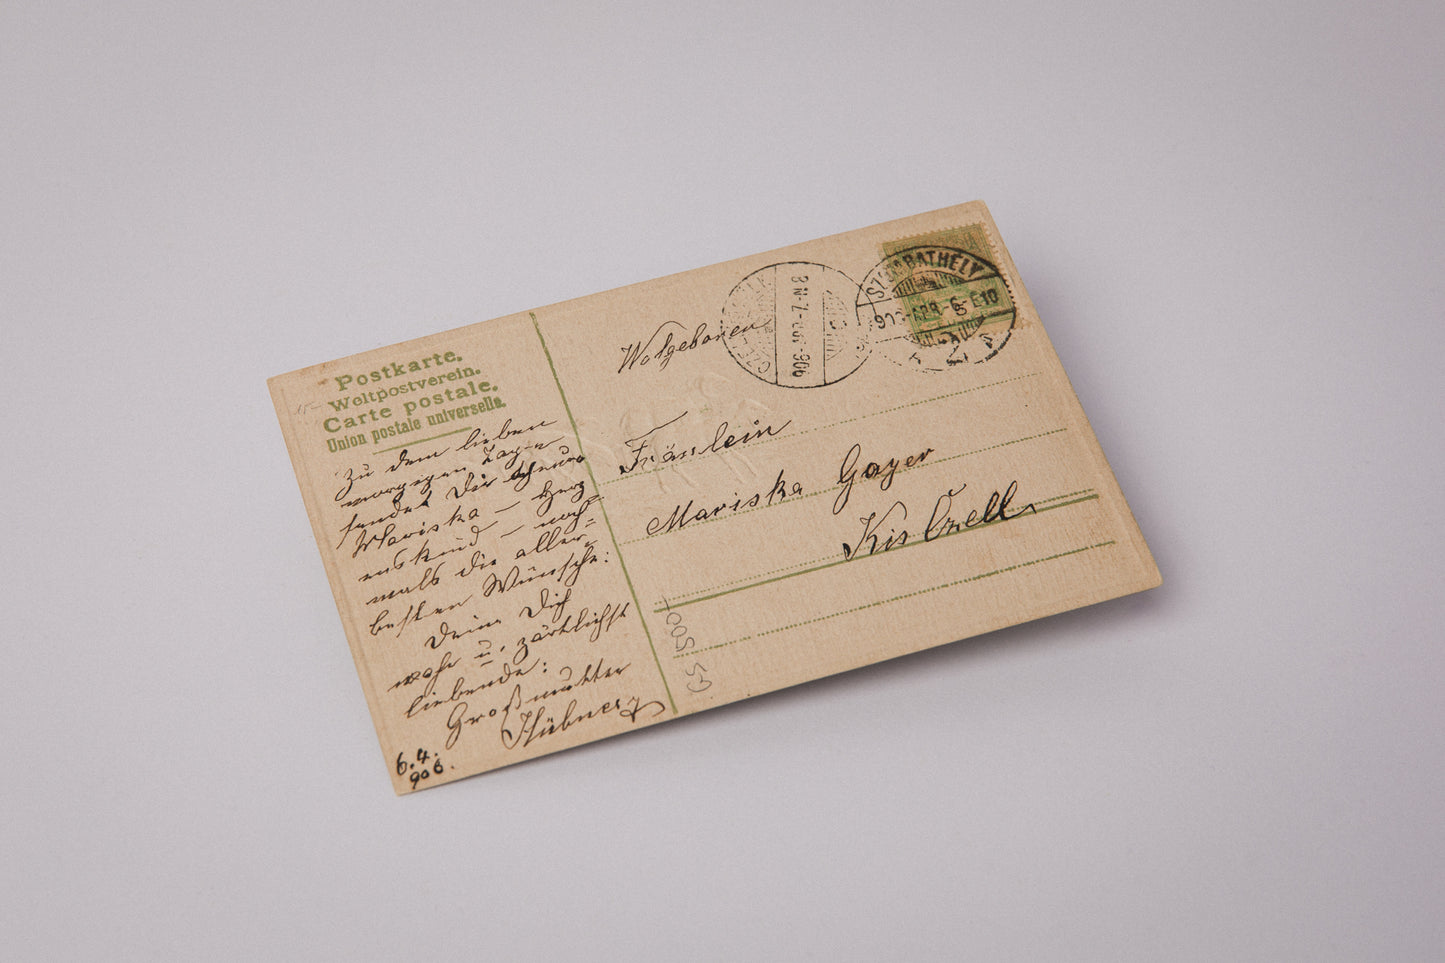 Postkarte.
Weltpostverein.
Carte postale.
Union postale universelle.
15-
Zu dem lieben
morgigen Tage
sendet Dir theure
Mariska - Herz
enskind - noch-
mals die aller-
besten Wünsche:
Deine Dich
wahr u. zärtlichst
liebende:
Großmutter
Hübner
6.4.
906.
Wolgeboren
Fräulein
Mariska Gayer
Kis Czell
SZOMBATHELY
906-APR-6-E10
906-APR-7-N 8